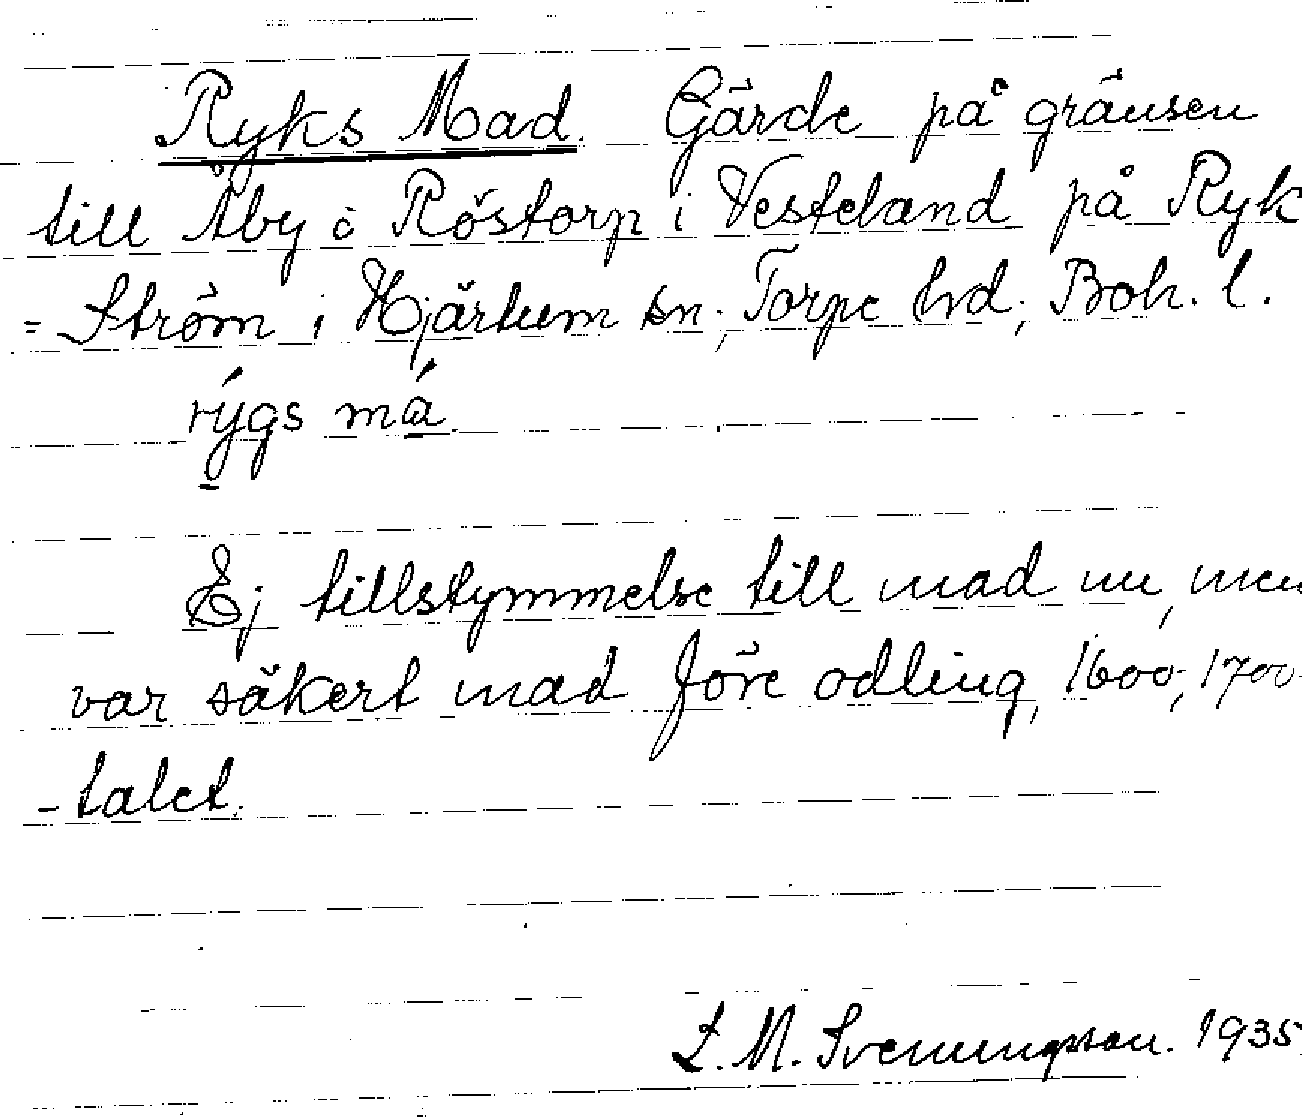 Ryks Mad. Gärde på gränsen
till Åby i Röstorp i Vesteland på Ryk
=Ström i Hjärtum sn; Torpe hrd; Boh. l.
rýgs má
Ej tillstymmelse till mad nu, men
var säkert mad före odling, 1600-, 1700-
-talet.
L. M. Svenungsson. 1935